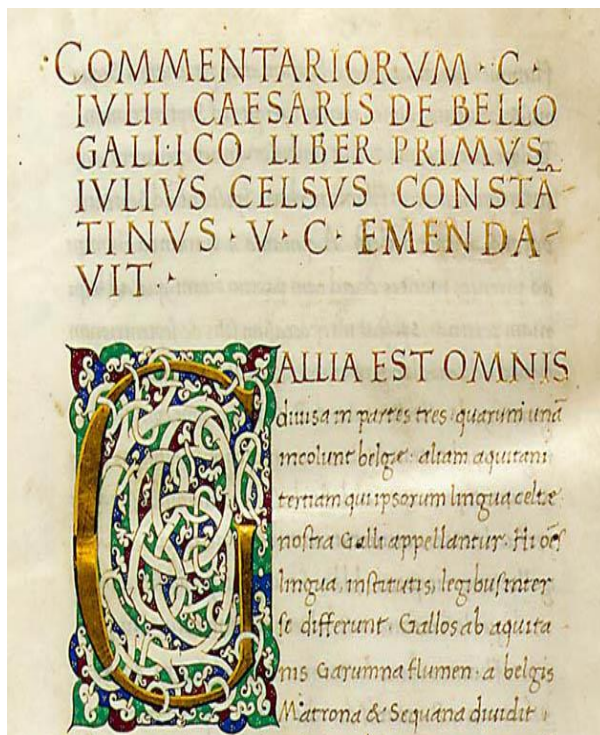 COMMENTARIORVM · C ·
IVLII CAESARIS DE BELLO
GALLICO LIBER PRIMVS
IVLIVS CELSVS CONSTĀ
TINVS · V · C · EMENDA
VIT ·
GALLIA EST OMNIS
diuisa in partes tres quarum unā
incolunt belgę aliam aquitani
tertiam qui ipsorum lingua celtæ
nostra Galli appellantur. Hi oēs
lingua, institutis, legibus inter
se differunt. Gallos ab aquita
nis Garumna flumen. a belgis
Matrona & Sequana diuidit